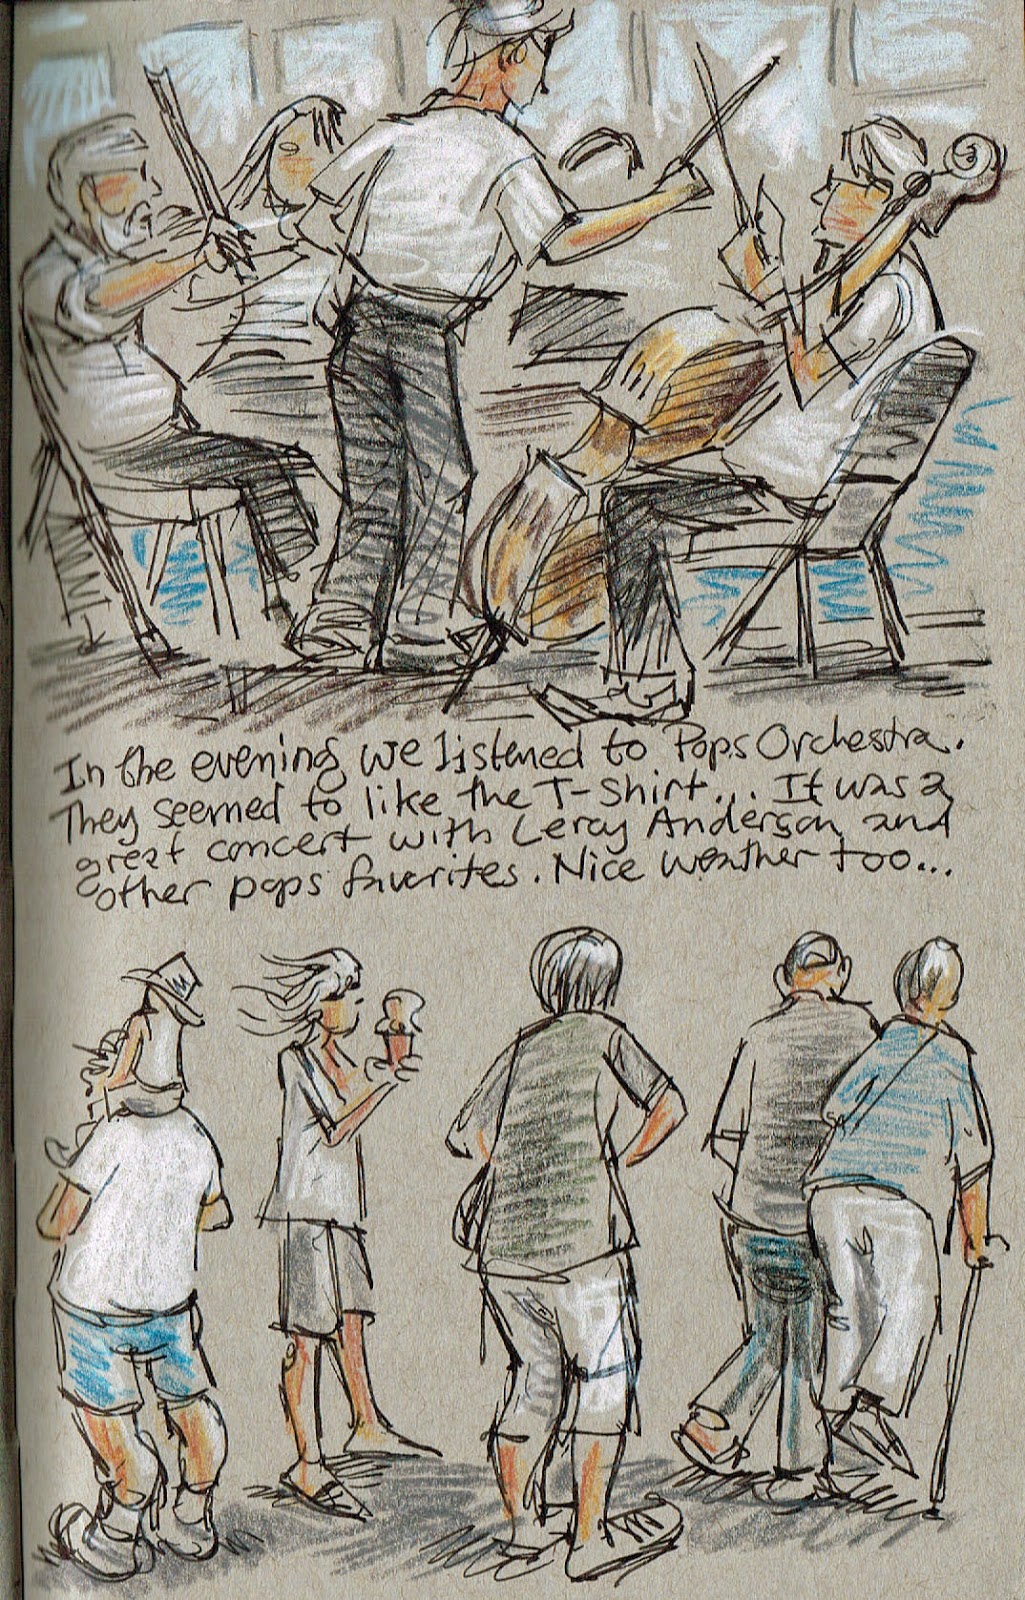 In the evening we listened to Pops Orchestra.
They seemed to like the T-Shirt... It was a
great concert with Leroy Anderson and
other pops favorites. Nice weather too...